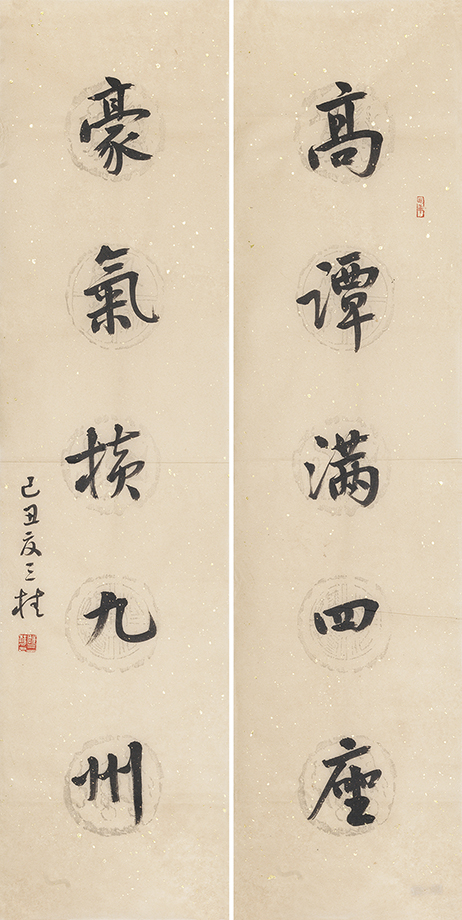 高譚满四座
豪氣横九州
己丑夏三桂